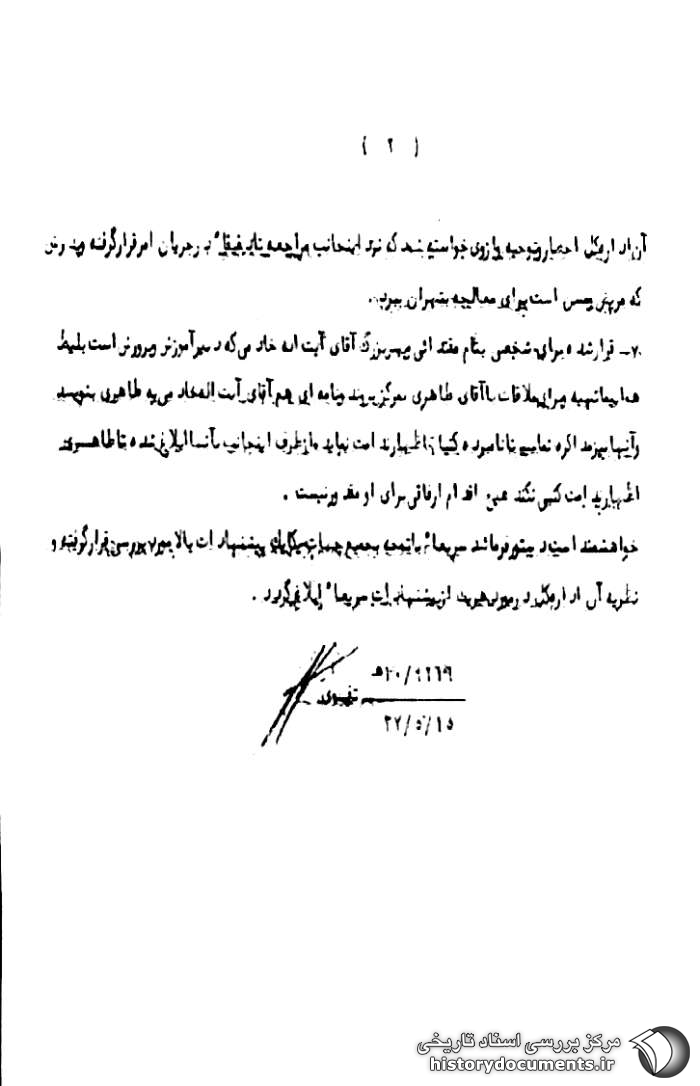 ( ۲ )
آن اداره کل احضار و توجیه و از وی خواسته شد که نزد اینجانب مراجعه تا دقیقاً در جریان امر قرار گرفته و پدرش
که مریض است برای معالجه بتهران ببرد.
۷- قرار شده برای شخصی بنام مقتدائی و پسر بزرگ آقای آیت اله خادمی که دبیر آموزش و پرورش است بلیط
هواپیما تهیه و برای ملاقات با آقای طاهری بمرکز بروند و نامه ای هم آقای آیت اله خادمی به طاهری بنویسد
و آنها نیز مذاکره نمایند تا نامبرده کتباً اظهار ندامت نماید و از طرف اینجانب بآنها ابلاغ شده تا طاهری
اظهار ندامت کتبی نکند هیچ اقدام ارفاقی برای او مقدور نیست.
خواهشمند است دستور فرمائید سریعاً با توجه بجمیع جهات یکایک پیشنهادات بالا مورد بررسی قرار گرفته و
نظریه آن اداره کل در مورد هریک از پیشنهادات سریعاً ابلاغ گردد.
۲۰/۹۲۶۹ه
تقوی
۲۷/۵/۱۵
مرکز بررسی اسناد تاریخی
historydocuments.ir